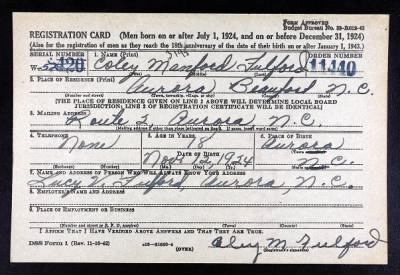 Form Approved
Budget Bureau No. 33-R012-42
REGISTRATION CARD (Men born on or after July 1, 1924, and on or before December 31, 1924)
(Also for the registration of men as they reach the 18th anniversary of the date of their birth on or after January 1, 1943.)
SERIAL NUMBER 1. NAME (Print) ORDER NUMBER
W 120 Coley Manford Fulford 11,140
(First) (Middle) (Last)
2. PLACE OF RESIDENCE (Print)
Aurora Beaufort N.C.
(Number and street) (Town, township, village, or city) (County) (State)
[THE PLACE OF RESIDENCE GIVEN ON LINE 2 ABOVE WILL DETERMINE LOCAL BOARD
JURISDICTION; LINE 2 OF REGISTRATION CERTIFICATE WILL BE IDENTICAL]
3. MAILING ADDRESS
Route 2 Aurora N.C.
[Mailing address if other than place indicated on line 2. If same, insert word same]
4. TELEPHONE 5. AGE IN YEARS 6. PLACE OF BIRTH
None 18 Aurora
DATE OF BIRTH (Town or county)
Nov. 1924 N.C.
(Exchange) (Number) (Mo.) (Day) (Yr.) (State or country)
7. NAME AND ADDRESS OF PERSON WHO WILL ALWAYS KNOW YOUR ADDRESS
Lucy Fulford, Aurora, N.C.
8. EMPLOYER'S NAME AND ADDRESS
9. PLACE OF EMPLOYMENT OR BUSINESS
(Number and street or R. F. D. number) (Town) (County) (State)
I AFFIRM THAT I HAVE VERIFIED ABOVE ANSWERS AND THAT THEY ARE TRUE.
DSS Form 1 (Rev. 11-16-42) (OVER) Coley M. Fulford
(Registrant's signature)